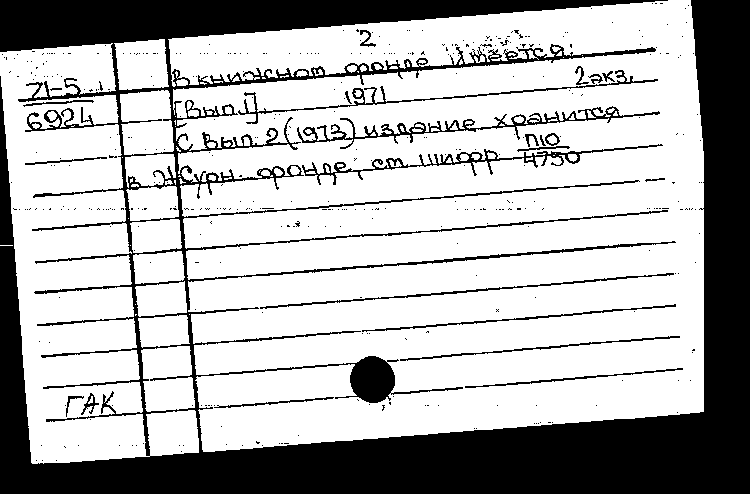 2
В книжном фонде имеется:
71-5
6924
[Вып.1]. 1971 2 экз.
С Вып. 2 (1973) издание хранится
в Журн. фонде, см шифр П10
4750
ГАК